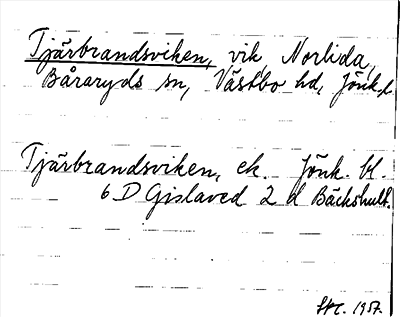 Tjärbrandsviken, vik, Norlida,
Båraryds sn, Västbo hd, Jönk. l.
Tjärbrandsviken, ek. Jönk. bl.
6 D Gislaved 2 d Bäckshult.
1957.